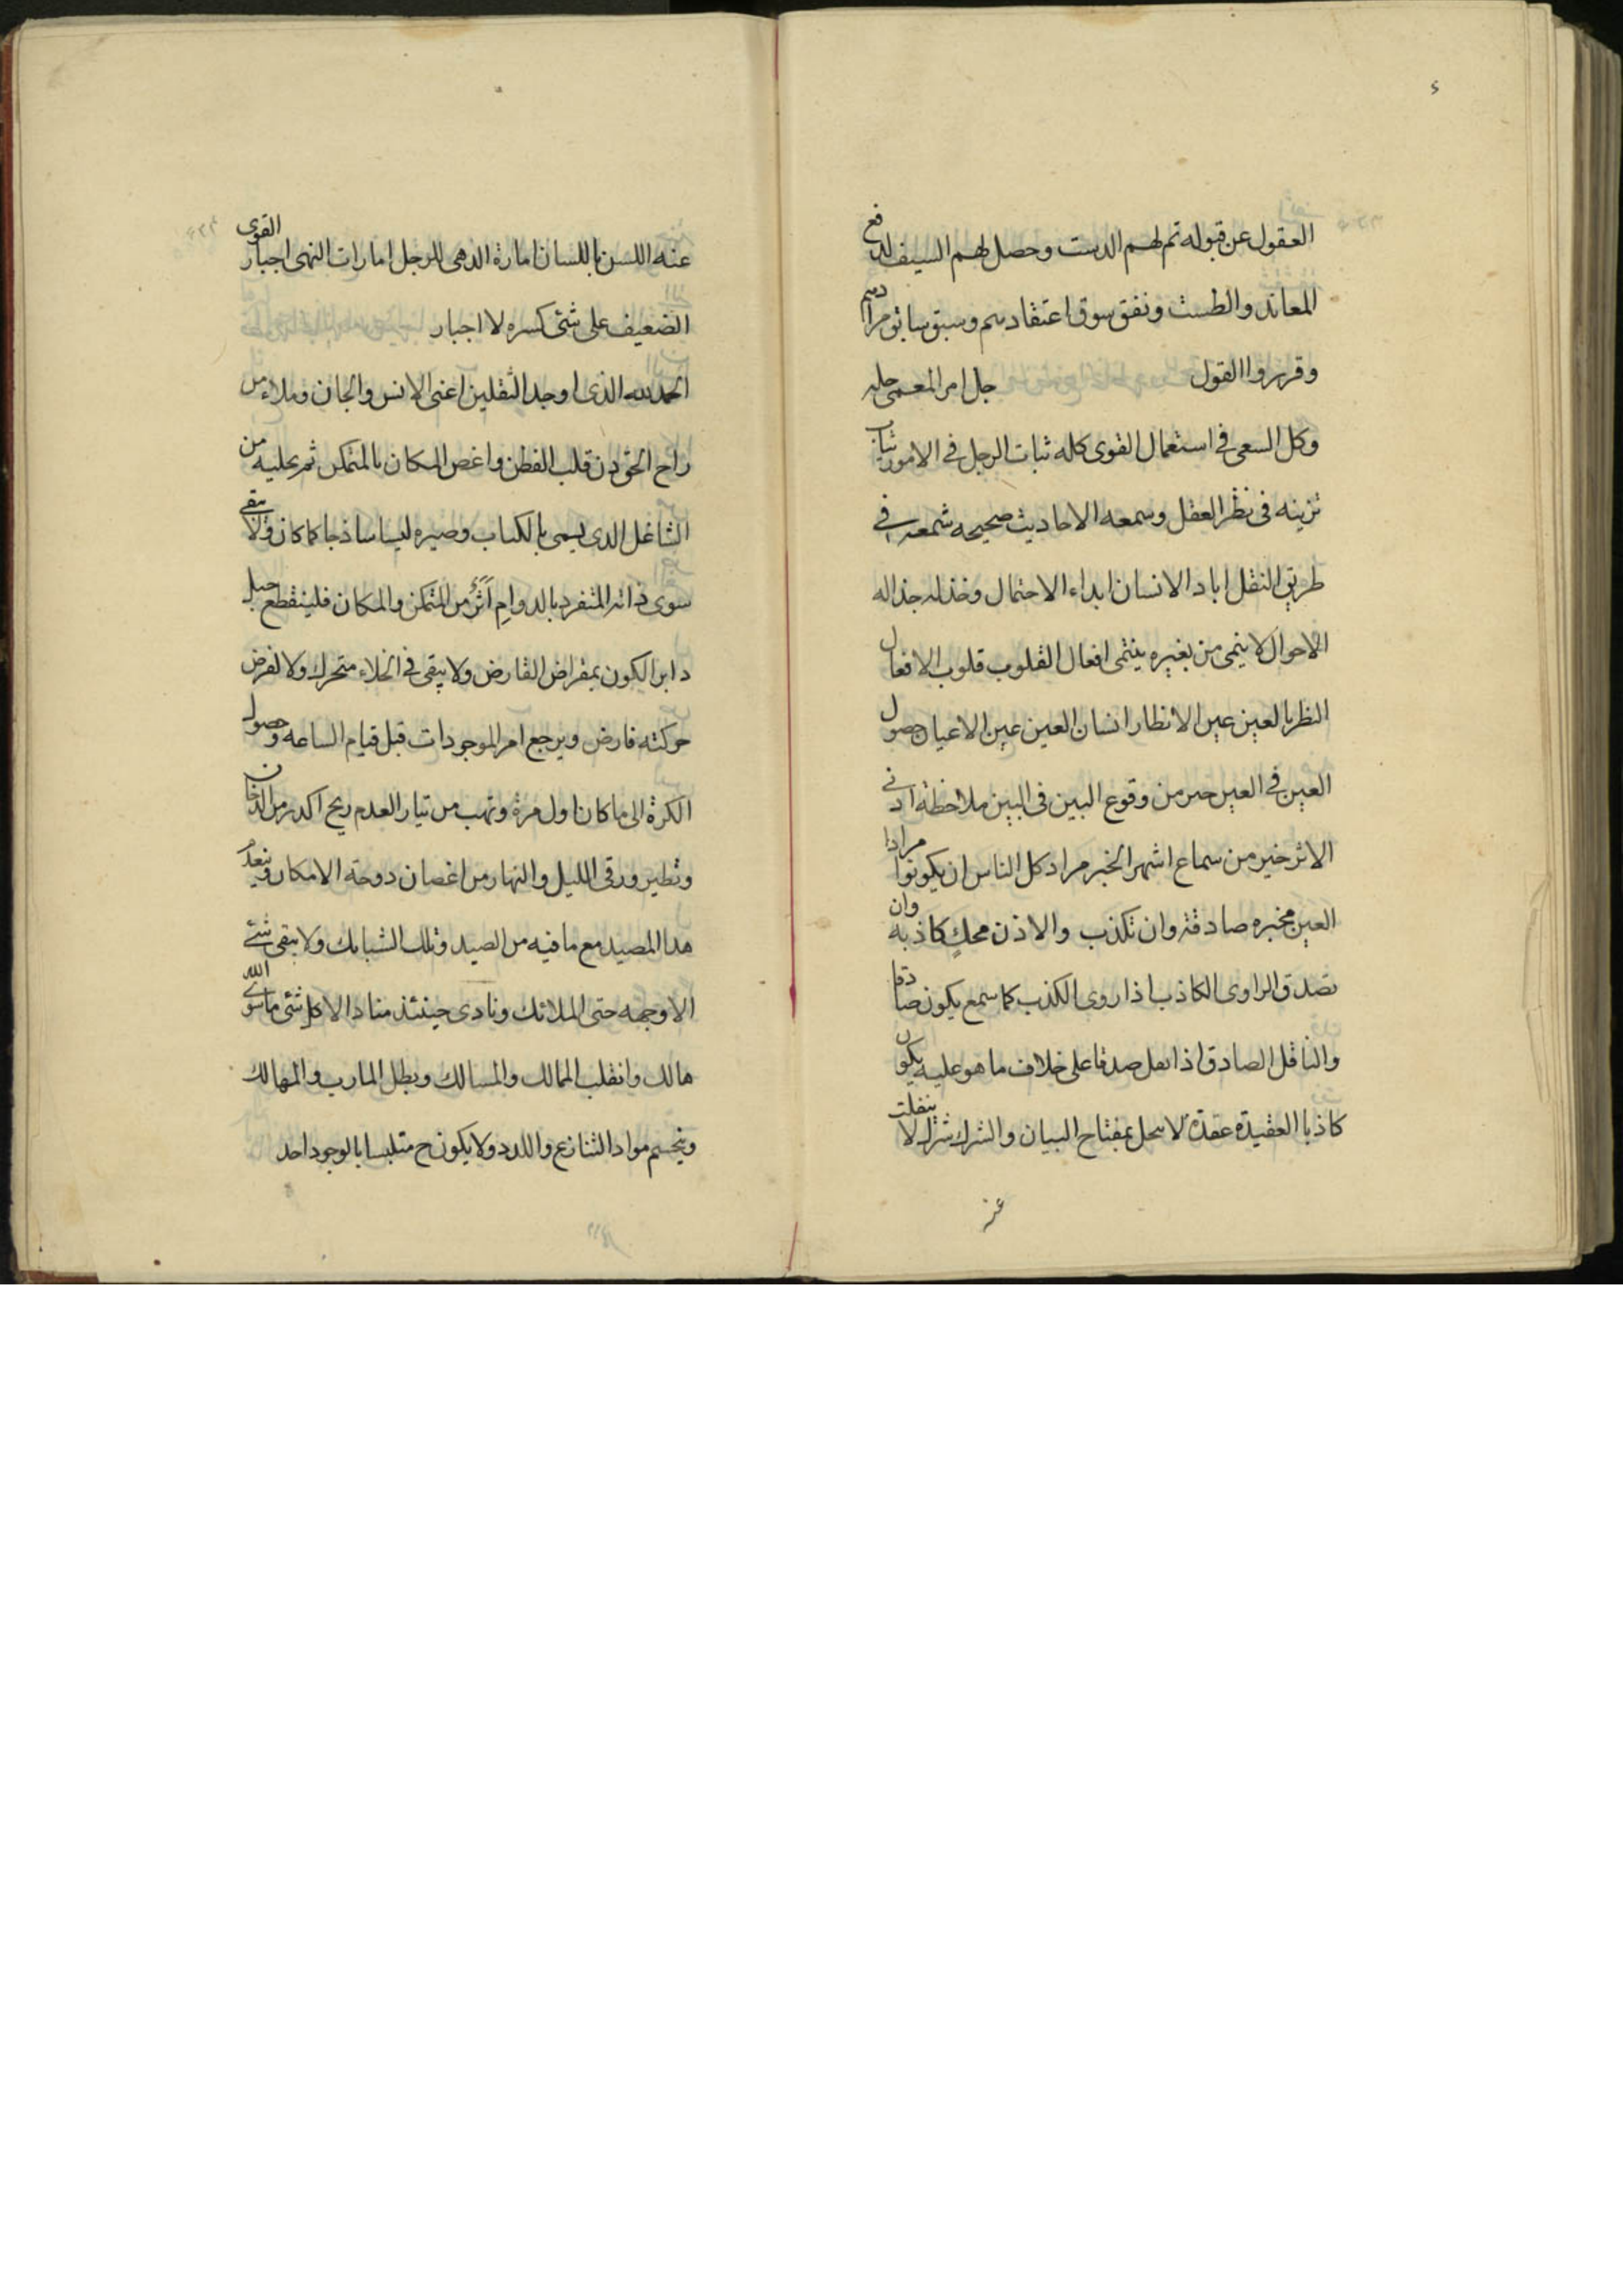 ٤
العقول عن قبوله تم لهم الدست وحصل لهم السيف لدفع
المعاند والطست ونفق سوق اعتقادهم وسبق سابق مرادهم
وقرروا القول جل امر المعمى حله
وكل السعى فى استعمال القوى كله ثبات الرجل فى الامور ثبات
تزينه فى نظر العقل وسمعه الاحاديث صحيحه شمعه فى
طريق النقل اباد الانسان ابداء الاحتمال وخذله جذاله
الاحوال لا ينمى من بغيره ينتمى افعال القلوب قلوب الافعال
النظر بالعين عين الانظار انسان العين عين الاعيان حصول
العين فى العين خير من وقوع البين فى البين ملاحظة ادنى
الاثر خير من سماع اشهر الخبر مراد كل الناس ان يكونوا مرادا
العين مخبره صادقة وان تكذب والاذن محك كاذبه وان
تصدق الراوى الكاذب اذا روى الكذب كما سمع يكون صادقا
والناقل الصادق اذا نقل صدقا على خلاف ما هو عليه يكون
كاذبا العقيدة عقدة لا تنحل بمفتاح البيان والشرك شرك لا ينفلت
عنه
عنه اللسن باللسان امارة الدهى للرجل امارات النهى اجبار القوى
الضعيف على شئ كسره لا اجبار
الحمد لله الذى اوجد الثقلين اعنى الانس والجان وملاء من
راح الحق دن قلب الفطن واغص المكان بالمتمكن ثم يخليه من
الشاغل الذى يسمى بالكتاب وصيره ليسا ساذجا كما كان ولا يبقى
سوى ذاته المتفرد بالدوام اثر من المتمكن والمكان فلينقطع حبل
دابر الكون بمقراض القارض ولا يبقى فى الخلاء متحرك ولا لفرض
حركته فارض ويرجع امر الموجودات قبل قيام الساعه وحصول
الكرة الى ما كان اول مرة وتهب من تيار العدم ريح اكدر من الدخان
وتطير ورقى الليل والنهار من اغصان دوحة الامكان وينعدم
هذا المصيد مع ما فيه من الصيد وتلك الشبابك ولا يبقى شئ
الا وجهه حتى الملائك ونادى حينئذ مناد الا كل شئ ما سوى الله
هالك وانقلب الممالك والمسالك وبطل المارب والمهالك
وينحسم مواد التنازع واللدد ولا يكون ح متلبسا بالوجود احد